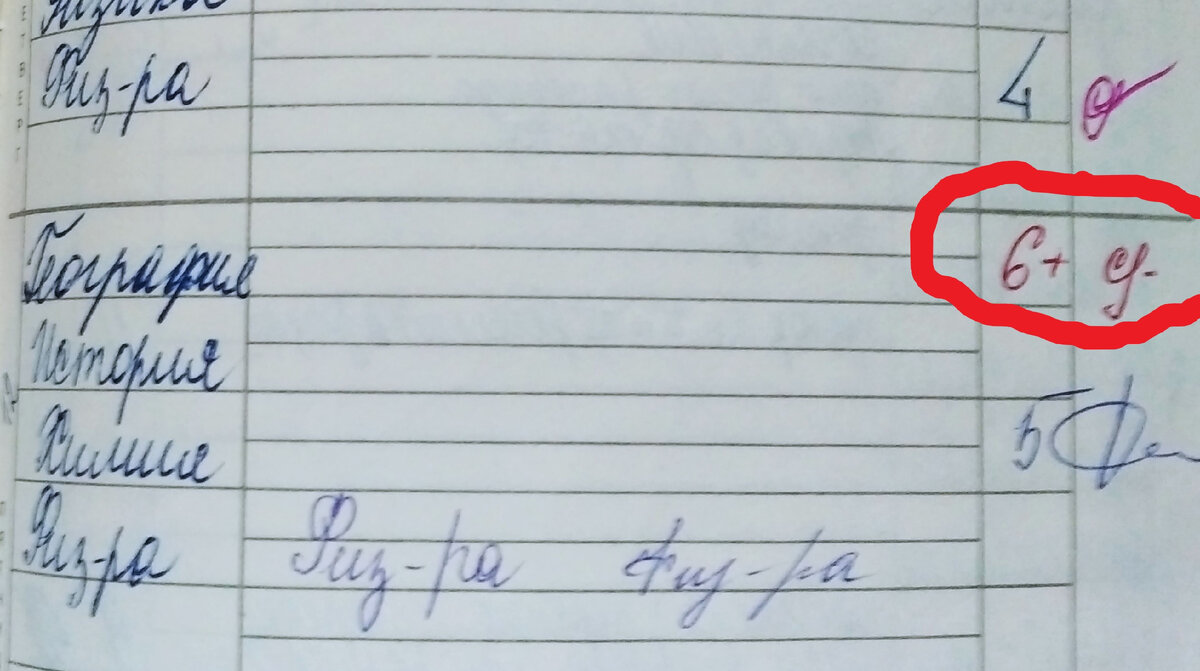 Физика
Физ-ра 4
География 6+
История
Химия 5
Физ-ра Физ-ра Физ-ра